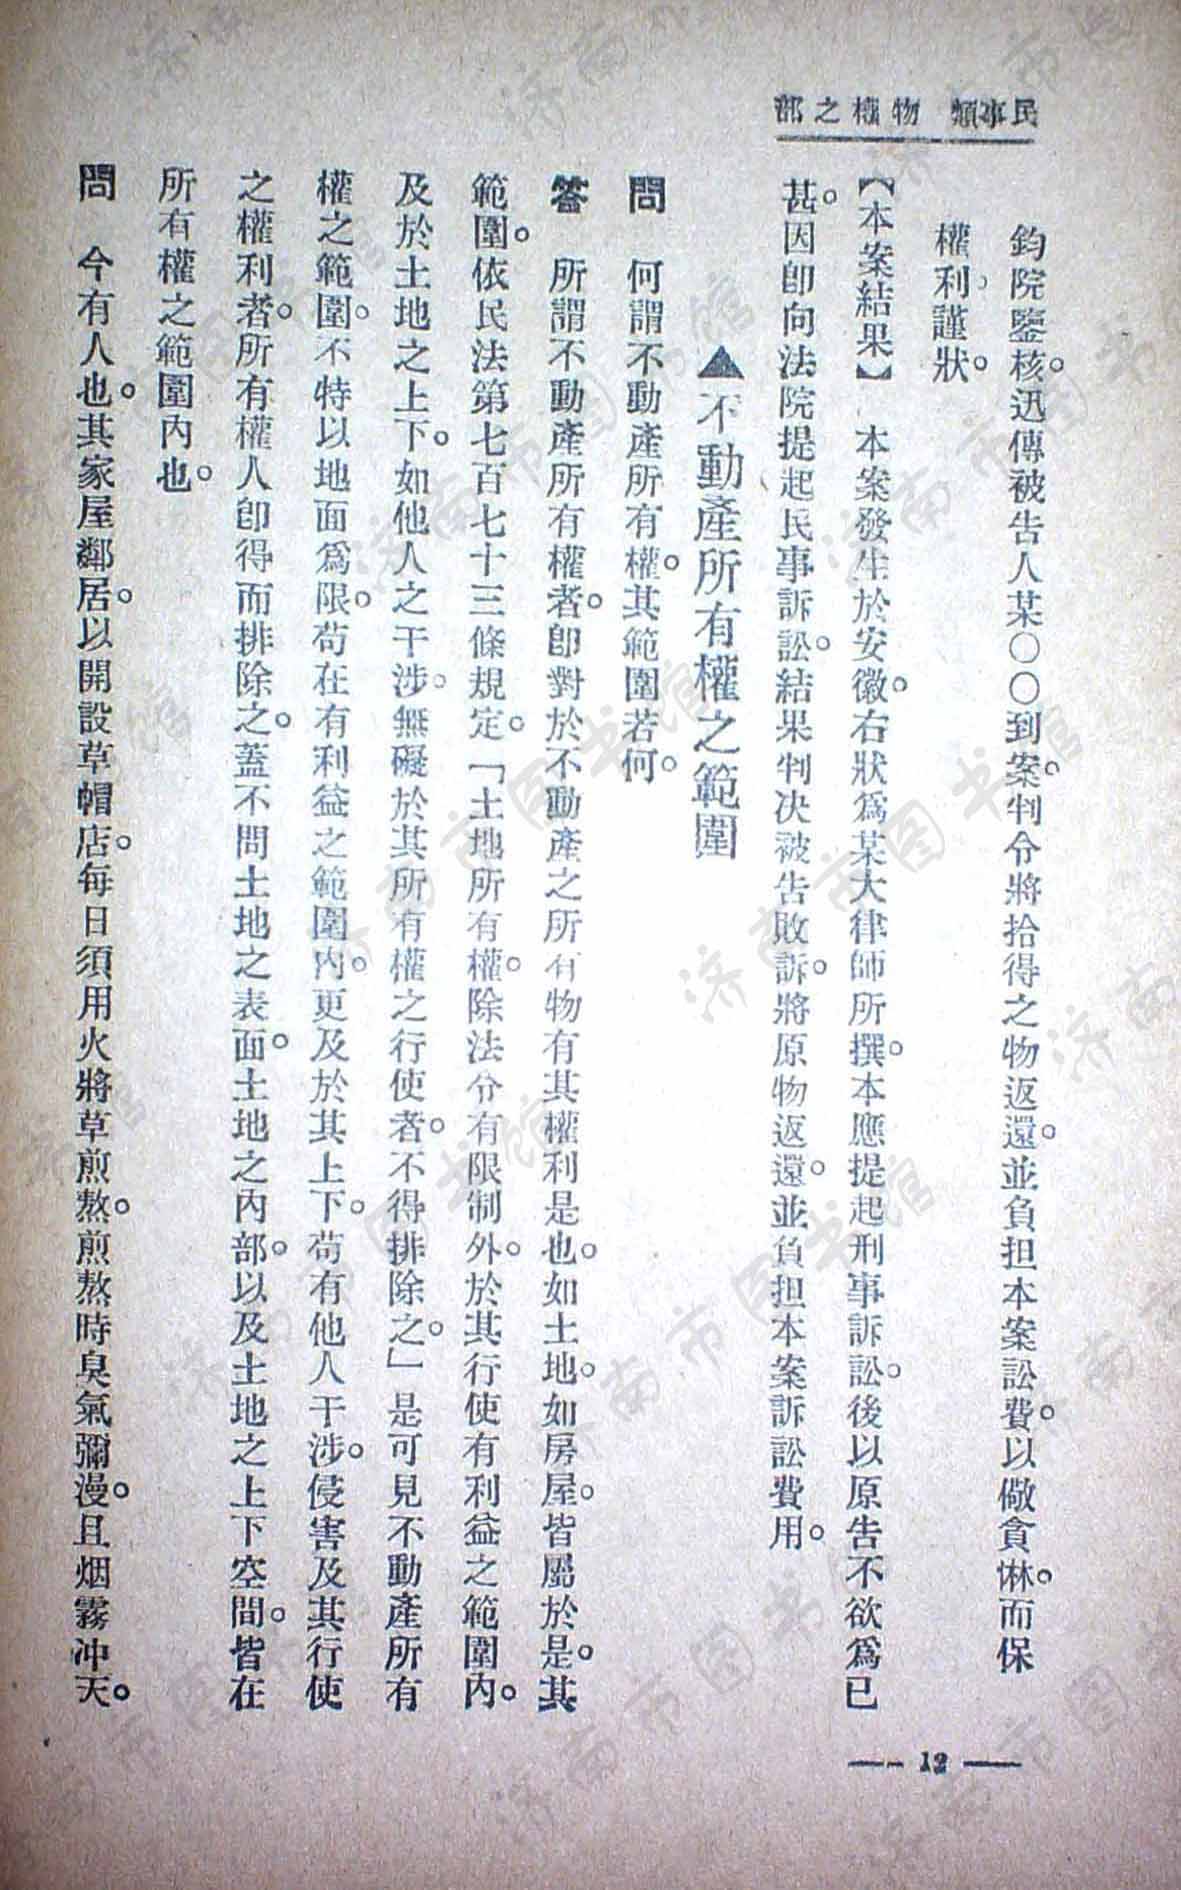 民事類 物權之部
鈞院鑒核。迅傳被告人某〇〇到案。判令將拾得之物返還。並負担本案訟費。以儆貪惏。而保
權利。謹狀。
【本案結果】 本案發生於安徽。右狀爲某大律師所撰。本應提起刑事訴訟。後以原告不欲爲已
甚。因卽向法院提起民事訴訟。結果判決被告敗訴。將原物返還。並負担本案訴訟費用。
▲不動產所有權之範圍
問 何謂不動產所有權。其範圍若何。
答 所謂不動產所有權者。卽對於不動產之所有物有其權利是也。如土地。如房屋。皆屬於是。其
範圍。依民法第七百七十三條規定。「土地所有權。除法令有限制外。於其行使有利益之範圍內。
及於土地之上下。如他人之干涉。無礙於其所有權之行使者。不得排除之。」是可見不動產所有
權之範圍。不特以地面爲限。苟在有利益之範圍內。更及於其上下。苟有他人干涉。侵害及其行使
之權利者。所有權人卽得而排除之。蓋不問土地之表面。土地之內部。以及土地之上下空間。皆在
所有權之範圍內也。
問 今有人也。其家屋鄰居。以開設草帽店。每日須用火將草煎熬。煎熬時臭氣彌漫。且烟霧沖天。
— 12 —
济南市图书馆